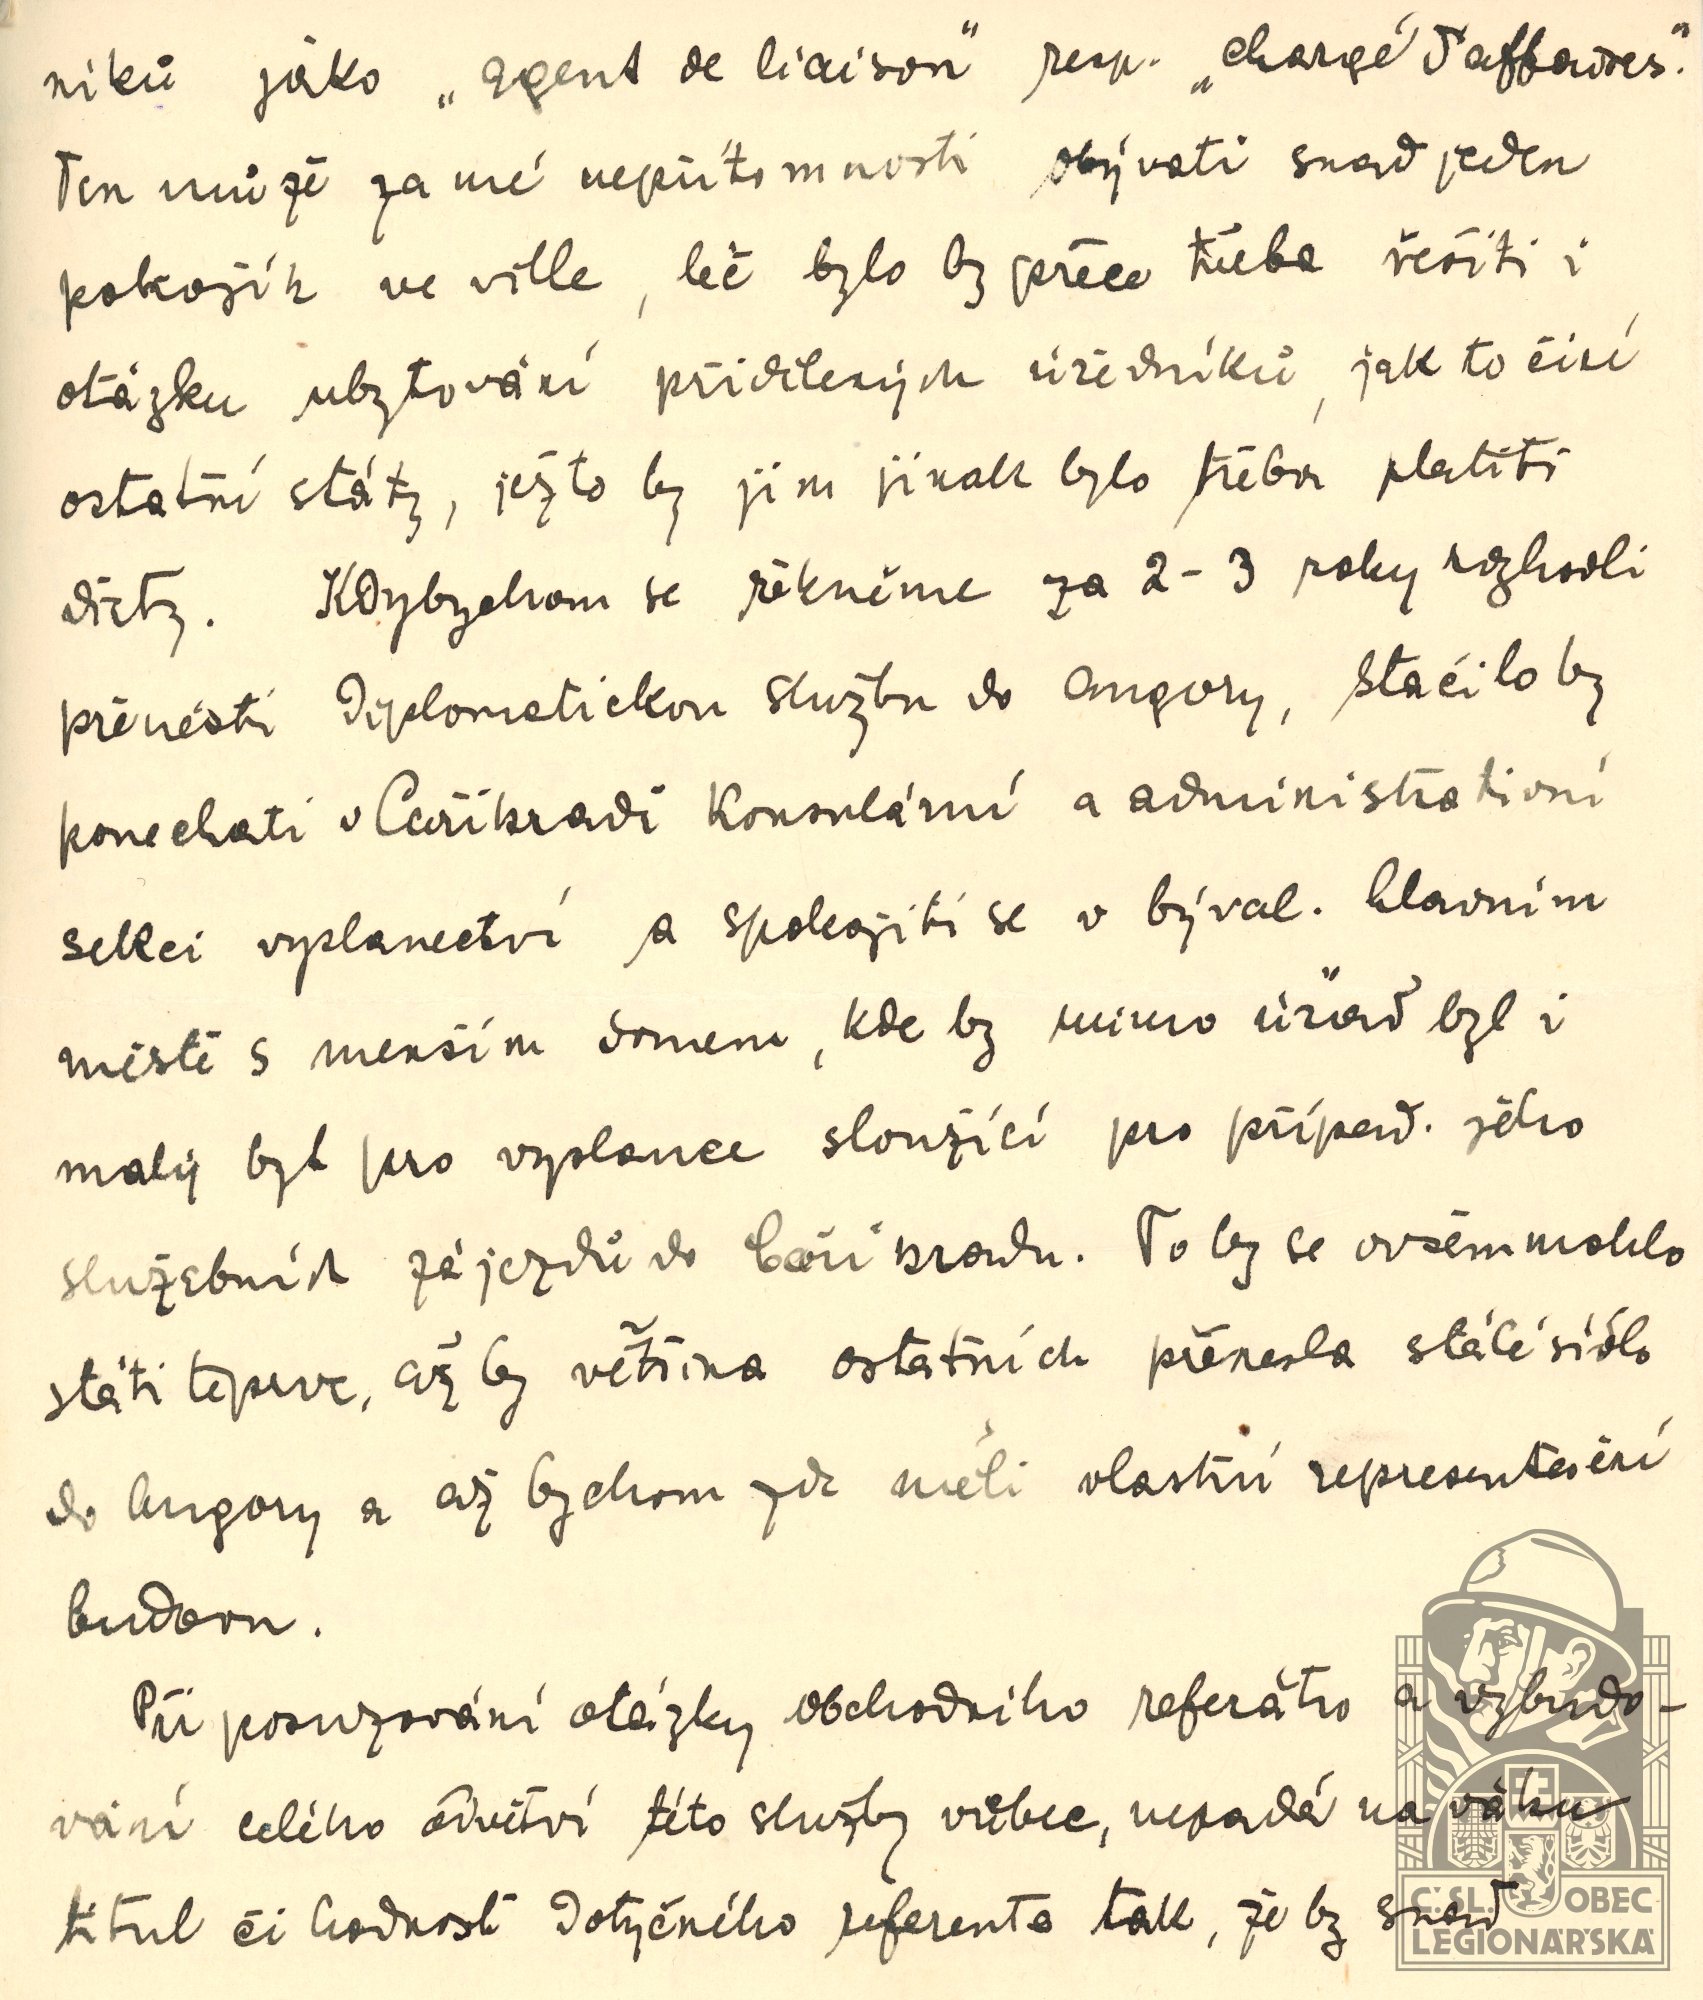 niků jako „agent de liaison" resp. „chargé d'affaires."
Ten může za mé nepřítomnosti obývati snad jeden
pokojík ve ville, leč bylo by přece třeba řešiti i
otázku ubytování přidělených úředníků, jak to činí
ostatní státy, ježto by jim jinak bylo třeba platiti
diety. Kdybychom se řekněme za 2-3 roky rozhodli
přenésti diplomatickou službu do Angory, stačilo by
ponechati v Cařihradě konsulární a administrativní
sekci vyslanectví a spokojiti se v býval. hlavním
městě s menším domem, kde by mimo úřad byl i
malý byt pro vyslance sloužící pro případ. jeho
služebních zájezdů do Cařihradu. To by se ovšem mohlo
státi teprve, až by většina ostatních přenesla stálé sídlo
do Angory a až bychom zde měli vlastní representační
budovu.
Při posuzování otázky obchodního referátu a vybudo-
vání celého odvětví této služby vůbec, nepadá na váhu
titul či hodnost dotyčného referenta tak, že by snad
ČSL. OBEC
LEGIONÁŘSKÁ